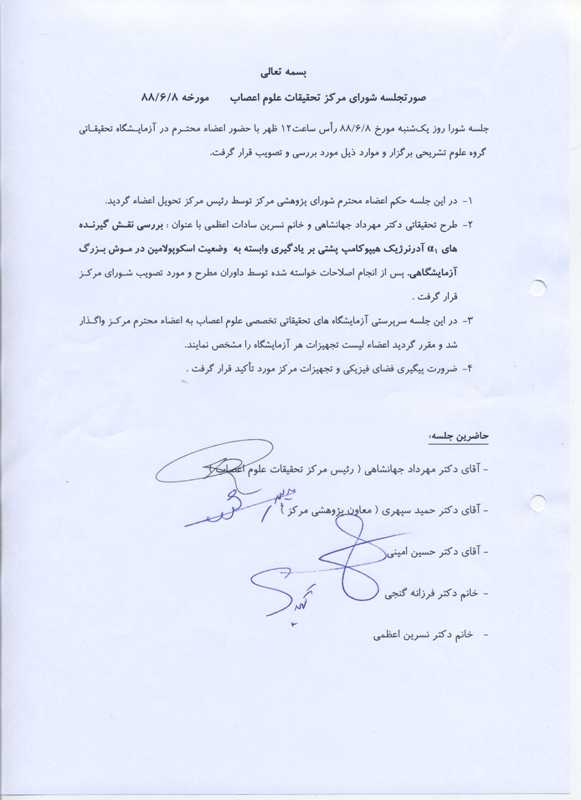 بسمه تعالی
صورتجلسه شورای مرکز تحقیقات علوم اعصاب مورخه ۸۸/۶/۸
جلسه شورا روز یک‌شنبه مورخ ۸۸/۶/۸ رأس ساعت۱۲ ظهر با حضور اعضاء محترم در آزمایشگاه تحقیقاتی
گروه علوم تشریحی برگزار و موارد ذیل مورد بررسی و تصویب قرار گرفت.
۱- در این جلسه حکم اعضاء محترم شورای پژوهشی مرکز توسط رئیس مرکز تحویل اعضاء گردید.
۲- طرح تحقیقاتی دکتر مهرداد جهانشاهی و خانم نسرین سادات اعظمی با عنوان : بررسی نقش گیرنده
های α۱ آدرنرژیک هیپوکامپ پشتی بر یادگیری وابسته به وضعیت اسکوپولامین در موش بزرگ
آزمایشگاهی. پس از انجام اصلاحات خواسته شده توسط داوران مطرح و مورد تصویب شورای مرکز
قرار گرفت .
۳- در این جلسه سرپرستی آزمایشگاه های تحقیقاتی تخصصی علوم اعصاب به اعضاء محترم مرکز واگذار
شد و مقرر گردید اعضاء لیست تجهیزات هر آزمایشگاه را مشخص نمایند.
۴- ضرورت پیگیری فضای فیزیکی و تجهیزات مرکز مورد تأکید قرار گرفت .
حاضرین جلسه:
- آقای دکتر مهرداد جهانشاهی ( رئیس مرکز تحقیقات علوم اعصاب )
- آقای دکتر حمید سپهری ( معاون پژوهشی مرکز )
- آقای دکتر حسین امینی
- خانم دکتر فرزانه گنجی
- خانم دکتر نسرین اعظمی